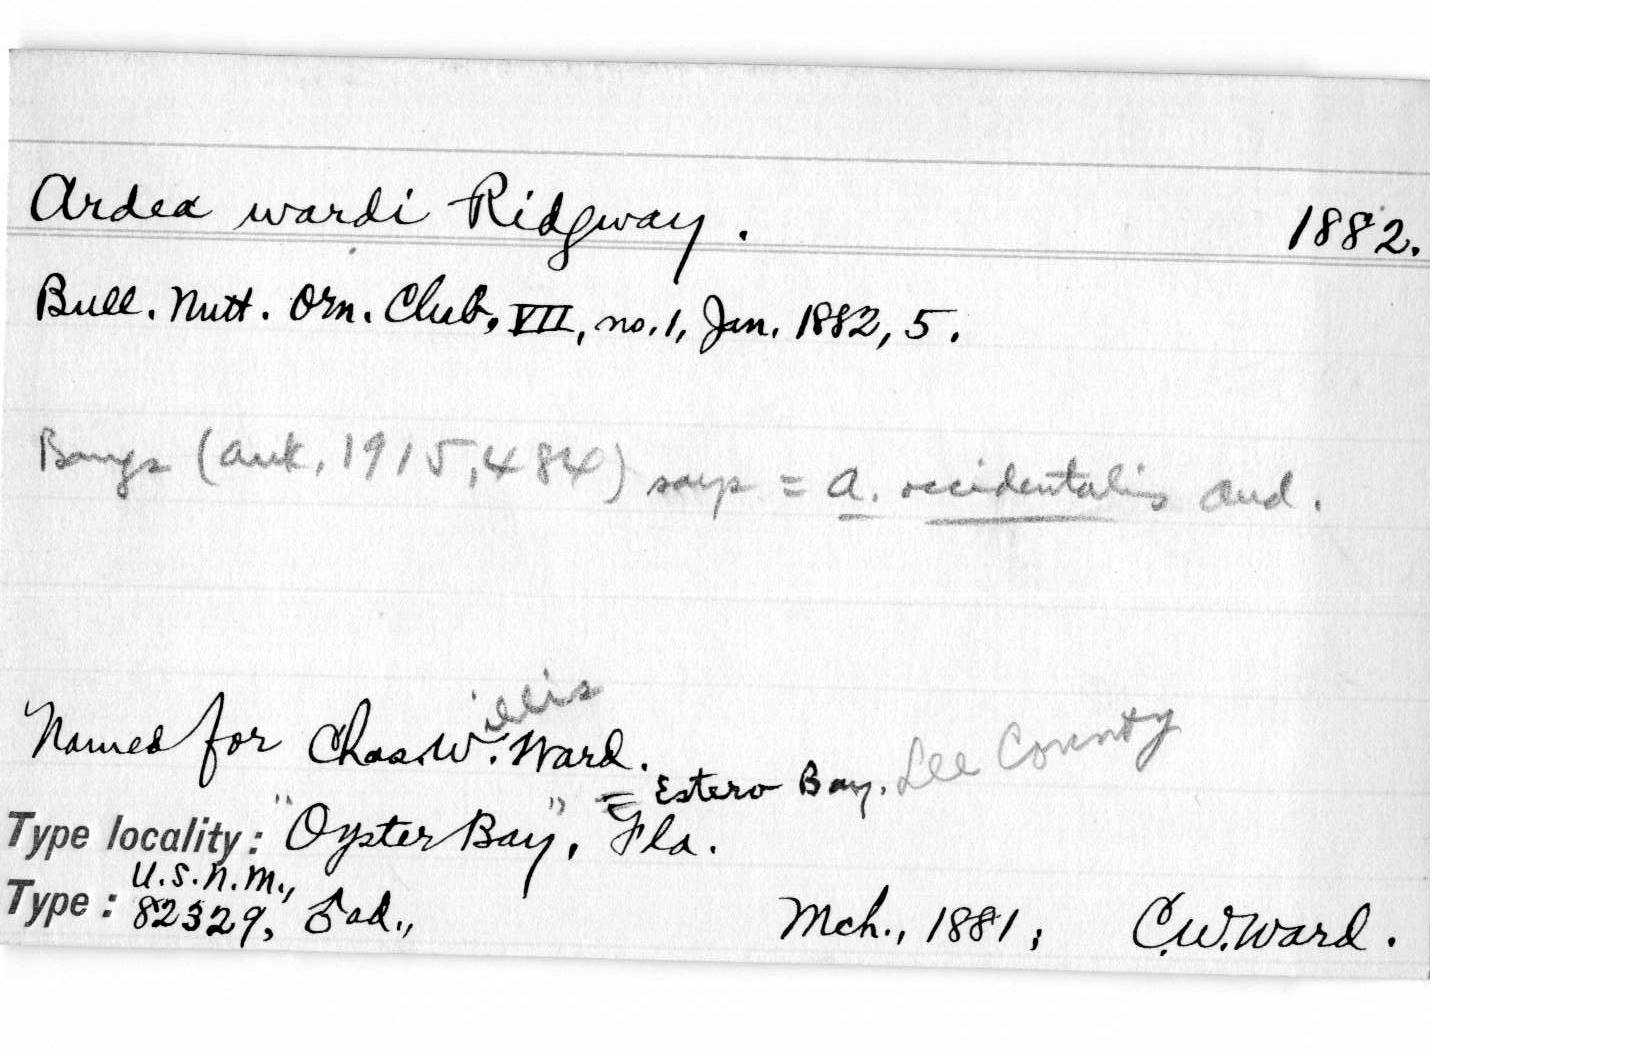 Ardea wardi Ridgway. 1882.
Bull. Nutt. Orn. Club, VII, no. 1, Jan. 1882, 5.
Bangs (Auk, 1915, 484) says = A. occidentalis Aud.
Named for Chas. W.illis Ward.
= Estero Bay. Lee County
Type locality: "Oyster Bay", Fla.
U.S.N.M.,
Type: 82329, ad., Mch., 1881; C.W. Ward.